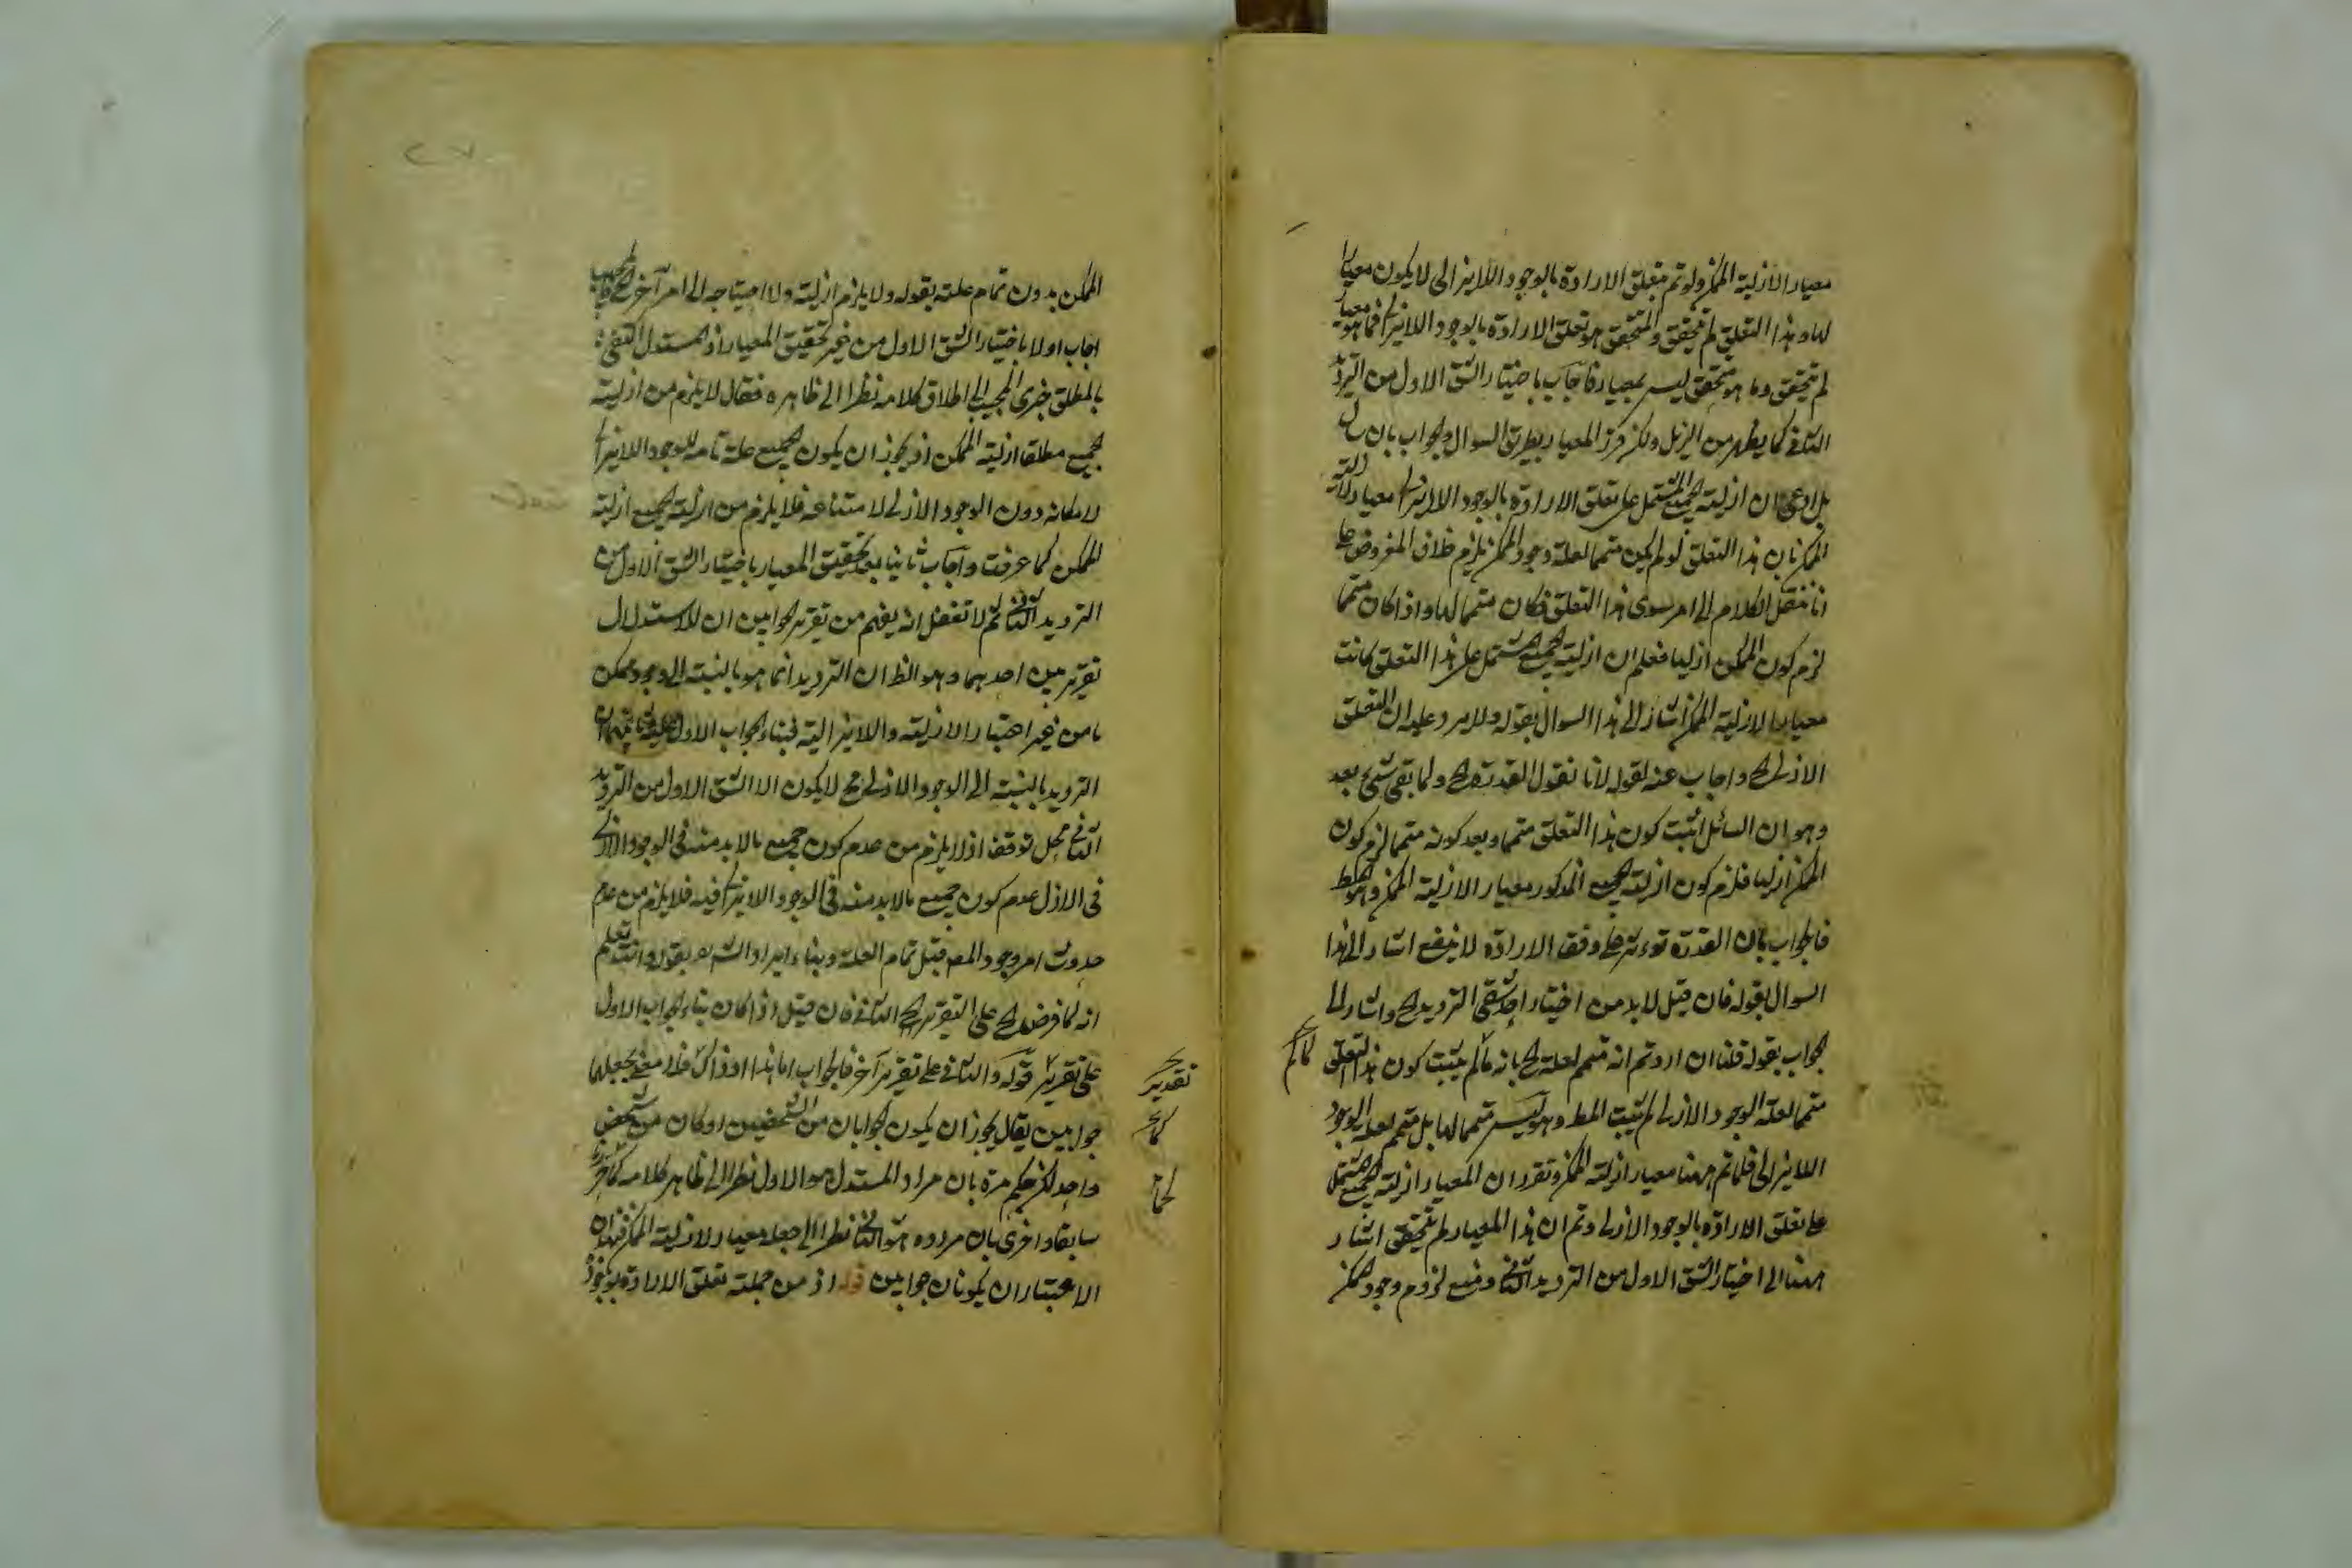 معيار الازلية الممكن ولو تم متعلق الارادة بالوجود اللايزالى لا يكون معيارا
لها وهذا التعلق لم يتحقق والمتحقق هو تعلق الارادة بالوجود اللايزالى فما هو معيار
لم يتحقق وما هو متحقق ليس بمعيار فاجاب باختيار الشق الاول من الترديد
الثانى كما يظهر من الزبل ولكن قرر المعيار بطريق السوال والجواب بان
بل ادعى ان ازلية الجميع المشتمل على تعلق الارادة بالوجود اللايزالى معيار لازلية
الممكن بان هذا التعلق لو لم يكن متمما لعلة وجود الممكن يلزم خلاف المفروض على
انا ننقل الكلام الى امر سوى هذا التعلق فكان متمما لها واذا كان متمما
لزم كون الممكن ازليا فعلم ان ازلية الجميع المشتمل على هذا التعلق كانت
معيارا لازلية الممكن اشار الى هذا السوال بقوله ولا يرد عليه ان التعلق
الازلى الخ واجاب عنه بقوله لانا نقول القدرة الخ ولما بقى شئ بعد
وهو ان السائل اثبت كون هذا التعلق متمما وبعد كونه متمما لزم كون
الممكن ازليا فلزم كون ازلية الجميع المذكور معيار الازلية الممكن وهو المط
فالجواب بان القدرة توءثر على وفق الارادة لا ينفع اشار الى هذا
السوال بقوله فان قيل لا بد من اختيار احد شقى الترديد الخ واشار الى
الجواب بقوله قلنا ان اردتم انه متمم لعلة الخ بانه ما لم يثبت كون هذا التعلق
متمما لعلة الوجود الازلى لم يثبت المط وهو ليس متمما لها بل متمم لعلة الوجود
اللايزالى فلما تم ههنا معيار ازلية الممكن وتقرر ان المعيار ازلية الجميع المشتمل
على تعلق الارادة بالوجود الازلى وتم ان هذا المعيار لم يتحقق اشار
ههنا الى اختيار الشق الاول من الترديد الثانى ومنع لزوم وجود الممكن
الممكن بدون تمام علته بقوله ولا يلزم ازليته ولا احتياجه الى امر آخر الخ فالمجيب
اجاب اولا باختيار الشق الاول من غير تحقيق المعيار اذ المستدل اكتفى
بالمطلق جرى المجيب الى اطلاق كلامه نظرا الى ظاهره فقال لا يلزم من ازلية
الجميع مطلقا ازلية الممكن اذ يجوز ان يكون الجميع علة تامة للوجود اللايزالى
لامكانه دون الوجود الازلى لامتناعه فلا يلزم من ازلية الجميع ازلية
الممكن كما عرفت واجاب ثانيا بعد تحقيق المعيار باختيار الشق الاول من
الترديد الثانى ثم لا تغفل انه يفهم من تقرير الجوابين ان للاستدلال
تقريرين احدهما وهو الظ ان الترديد انما هو بالنسبة الى وجود ممكن
ما من غير اعتبار الازلية واللايزالية فبناء الجواب الاول عليه وثانيهما ان
الترديد بالنسبة الى الوجود الازلى الخ لا يكون الا الشق الاول من الترديد
الثانى محل توقف اذ لا يلزم من عدم كون جميع ما لا بد منه فى الوجود الازلى
فى الازل عدم كون جميع ما لا بد منه فى الوجود اللايزالى فيه فلا يلزم من عدم
حدوث امر وجود المم قبل تمام العلة وبناء ايراد الشه بقوله وانت تعلم
انه لما فرض الخ على التقرير الثانى فان قيل اذا كان بناء الجواب الاول
على تقرير قوله والثانى على تقرير آخر فالجواب اما هذا او ذاك فلا معنى لجعلهما
جوابين يقال يجوز ان يكون الجوابان من الشخصين او كان من شخص
واحد لكن حكم مرة بان مراد المستدل هو الاول نظرا الى ظاهر كلامه كما مر
سابقا واخرى بان مراده هو الثانى نظرا الى جعله معيار الازلية الممكن فهذان
الاعتباران يكونان جوابين قوله اذ من جملته تعلق الارادة بوجوده
تقدير